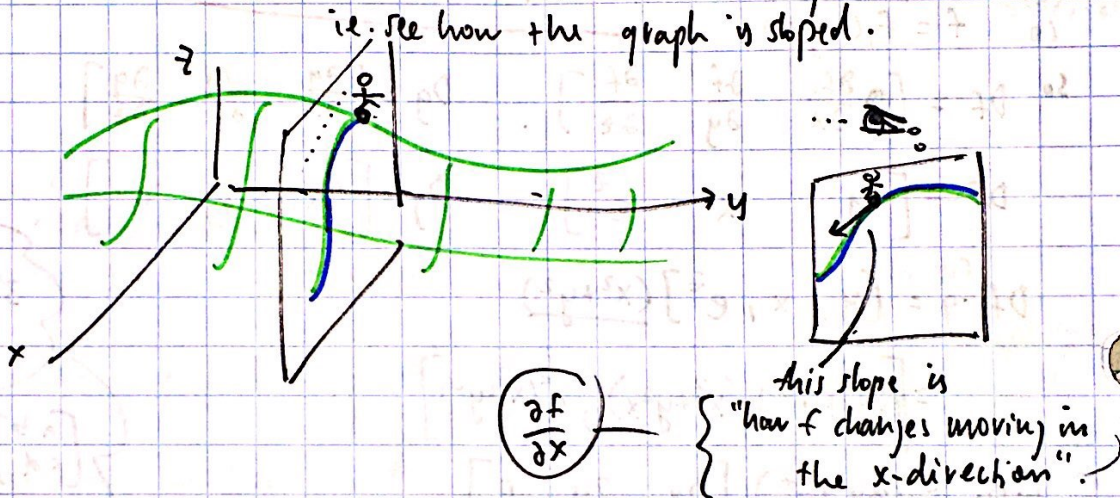 i.e. see how the graph is sloped.
z
y
x
∂f/∂x
this slope is
"how f changes moving in
the x-direction".